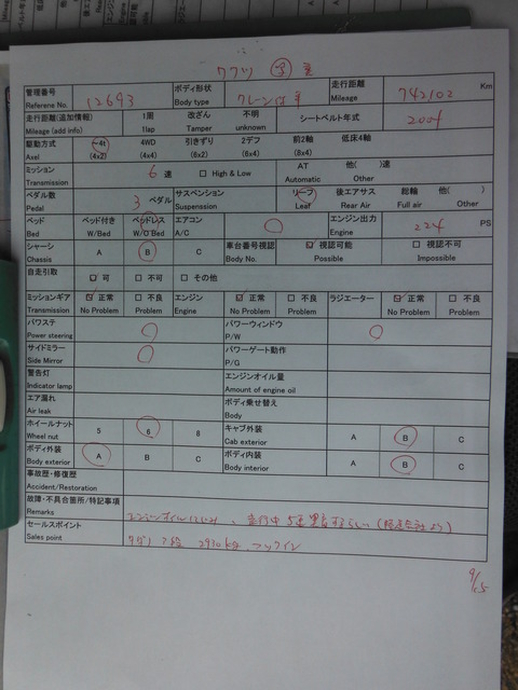 管理番号 12693 ボディ形状 クレーン付 走行距離 742,102 Km
Referene No. Body type Mileage
走行距離(追加情報) 1周 改ざん 不明 シートベルト年式 2004
Mileage (add info) 1lap Tamper unknown
駆動方式 4t 4WD 引きずり 2デフ 前2軸 低床4軸
Axel (4x2) (4x4) (6x2) (6x4) (8x4)
ミッション 6 速 □ High & Low AT 他( )速
Transmission Automatic Other
ペダル数 3 ペダル サスペンション リーフ 後エアサス 総輪 他( )
Pedal Suspenssion Leaf Rear Air Full air Other
ベッド ベッド付き ベッドレス エアコン エンジン出力 224 PS
Bed W/Bed W/O Bed A/C Engine
シャーシ A B C 車台番号視認 ☑ 視認可能 □ 視認不可
Chassis Body No. Possible Impossible
自走引取 ☑ 可 □ 不可 □ その他
ミッションギア ☑ 正常 □ 不良 エンジン ☑ 正常 □ 不良 ラジエーター ☑ 正常 □ 不良
Transmission No Problem Problem Engine No Problem Problem No Problem Problem
パワステ パワーウィンドウ
Power steering P/W
サイドミラー パワーゲート動作
Side Mirror P/G
警告灯 エンジンオイル量
Indicator lamp Amount of engine oil
エア漏れ ボディ乗せ替え
Air leak Body
ホイールナット 5 6 8 キャブ外装 A B C
Wheel nut Cab exterior
ボディ外装 A B C ボディ内装 A B C
Body exterior Body interior
事故歴・修復歴
Accident/Restoration
故障・不具合箇所/特記事項
Remarks エンジンオイルにじみ、走行中5速
セールスポイント
Sales point タダノ 2段 2930kg フックイン
9/15